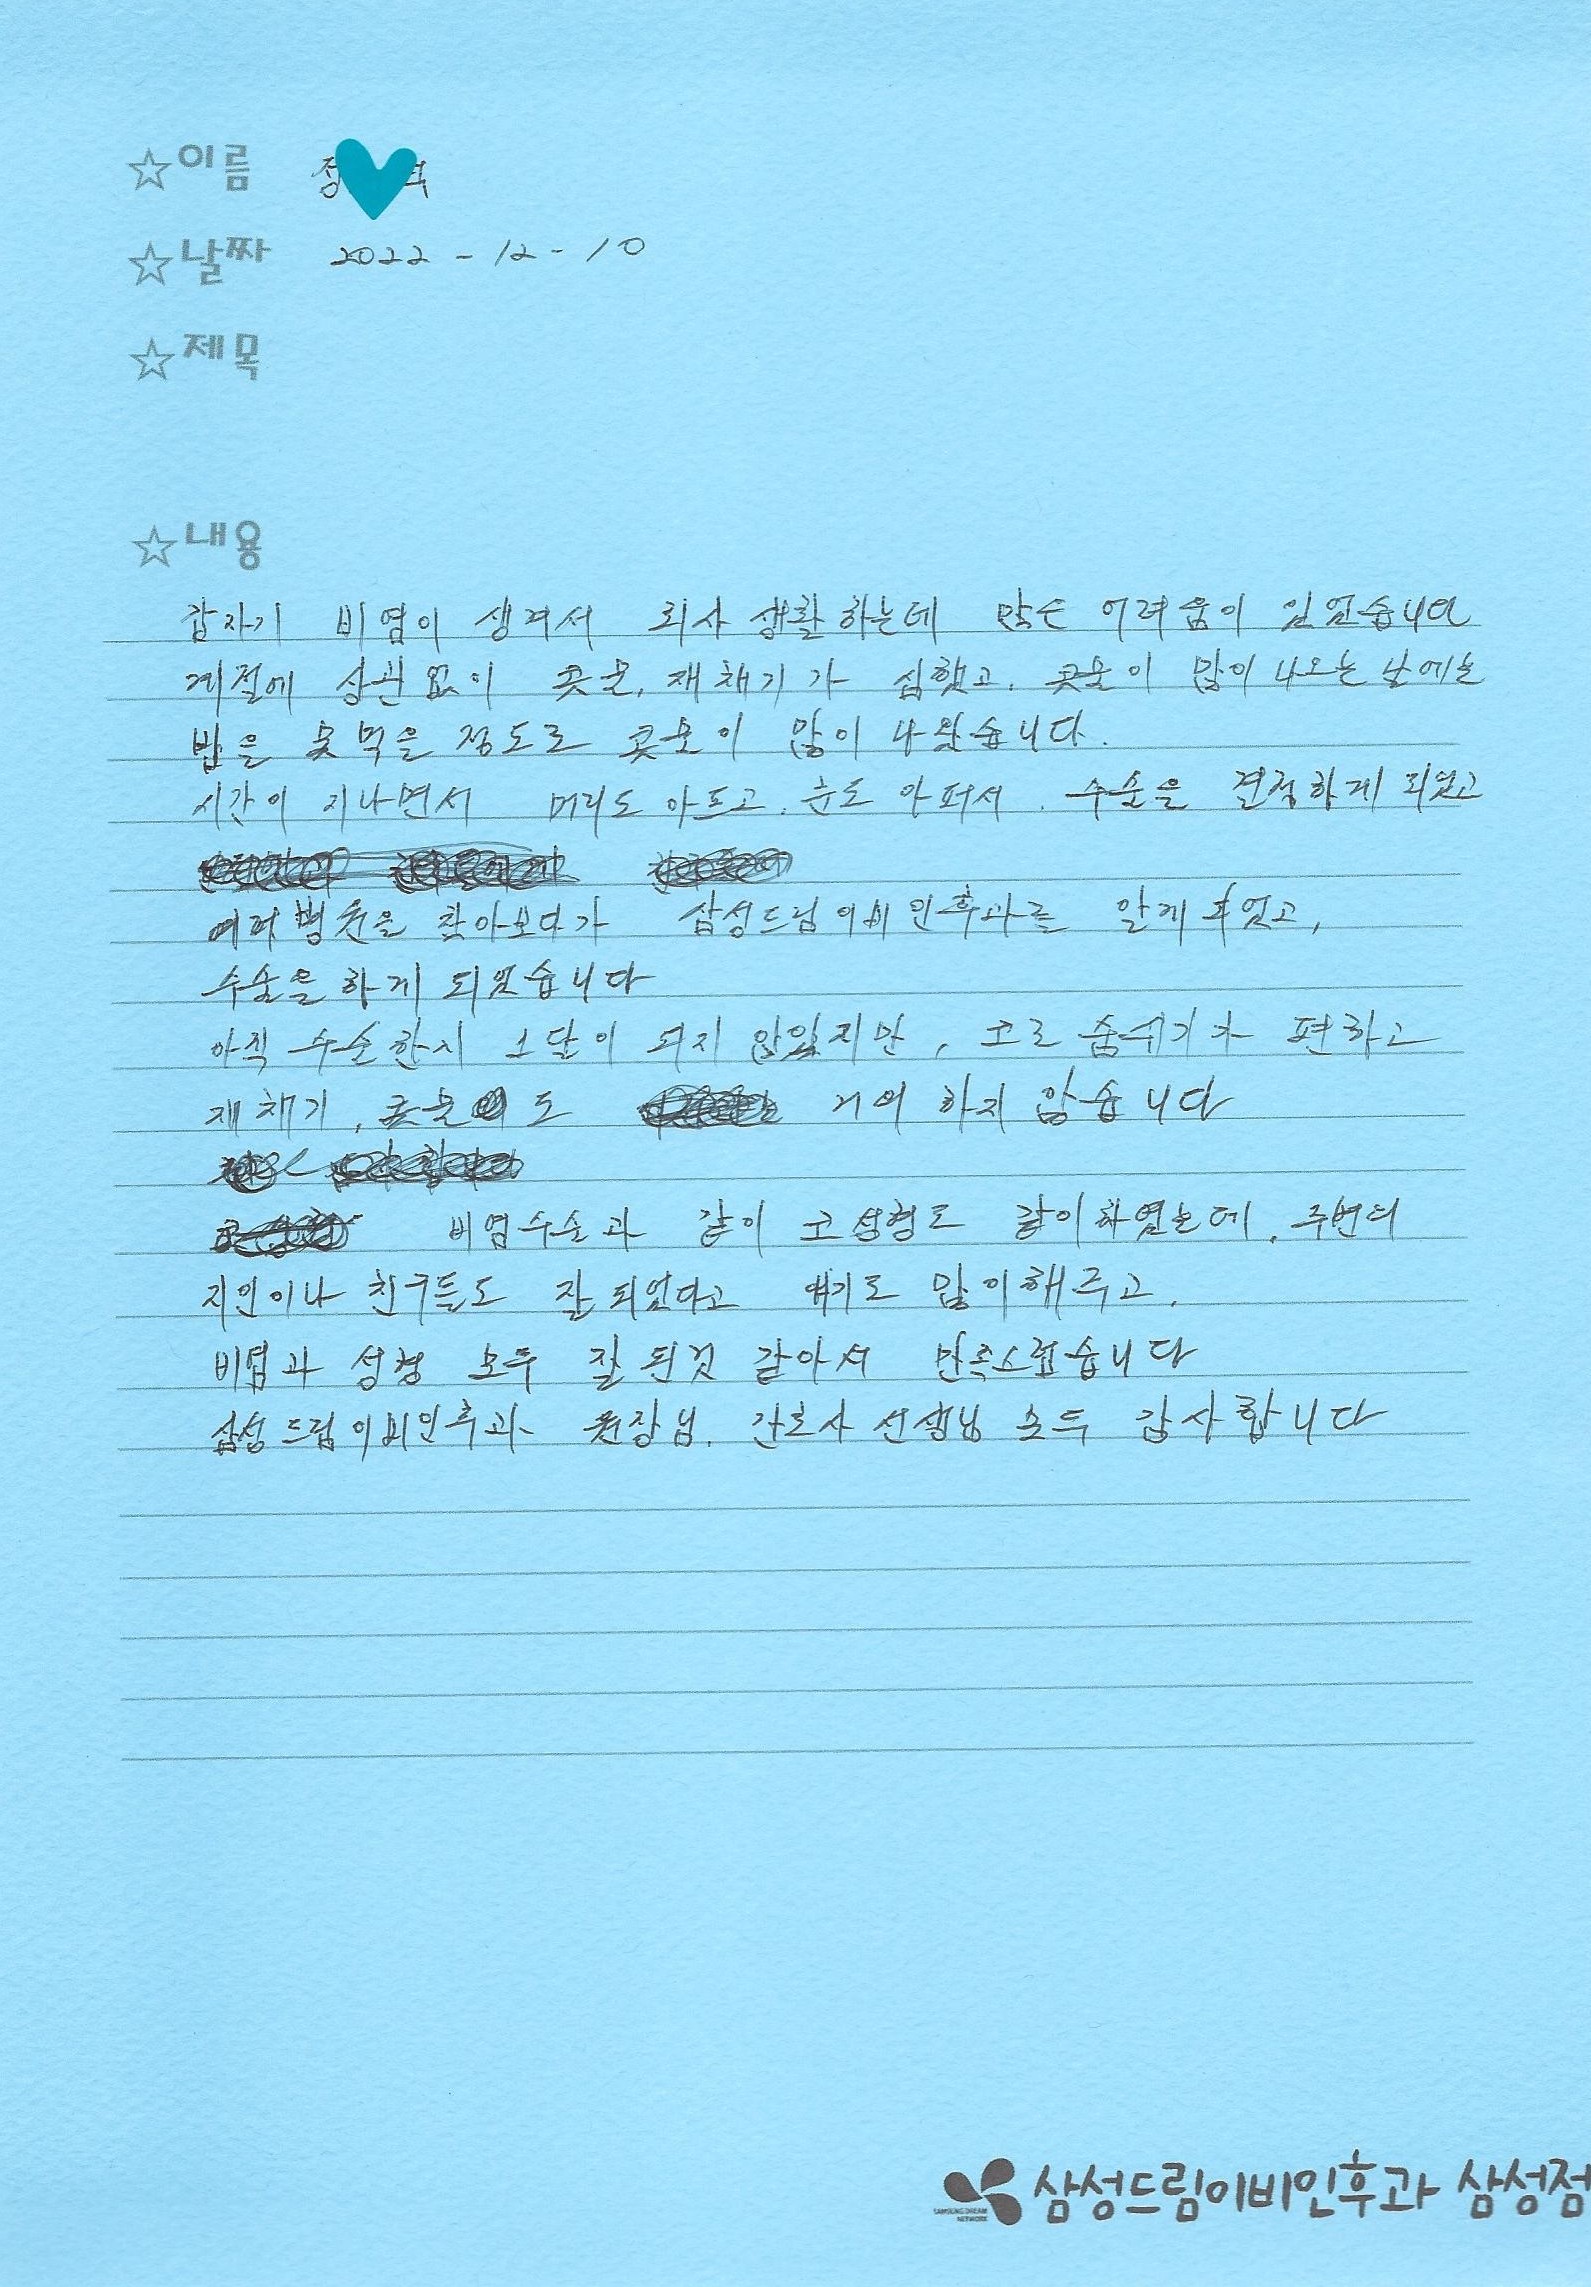 ☆이름 정
☆날짜 2022-12-10
☆제목
☆내용
갑자기 비염이 생겨서 회사 생활하는데 많은 어려움이 있었습니다
계절에 상관없이 콧물, 재채기가 심했고, 콧물이 많이 나오는 날에는
밥을 못먹을 정도로 콧물이 많이 나왔습니다.
시간이 지나면서 머리도 아프고, 눈도 아퍼서, 수술을 결정하게 되었고
여러병원을 찾아보다가 삼성드림이비인후과를 알게되었고,
수술을 하게 되었습니다
아직 수술한지 1달이 되지 않았지만, 코로 숨쉬기가 편하고
재채기, 콧물도 거의 하지 않습니다
비염수술과 같이 코성형도 같이하였는데, 주변의
지인이나 친구들도 잘되었다고 얘기도 많이해주고,
비염과 성형 모두 잘된것 같아서 만족스럽습니다
삼성드림이비인후과 원장님, 간호사 선생님 모두 감사합니다
SAMSUNG DREAM
NETWORK
삼성드림이비인후과 삼성점